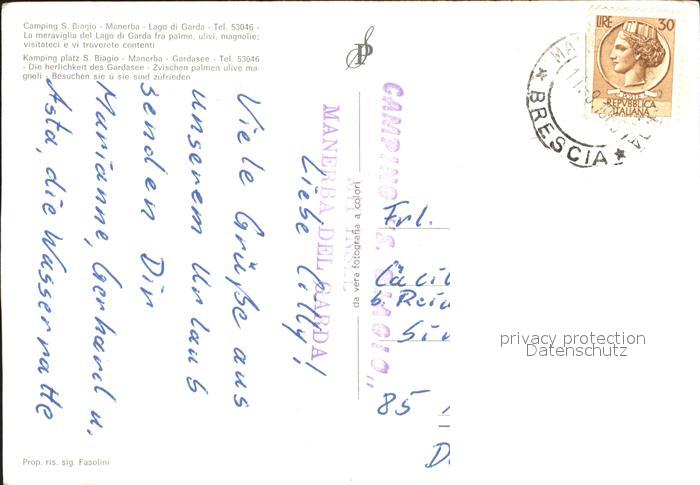 Camping S. Biagio - Manerba - Lago di Garda - Tel. 53046 -
La meraviglia del Lago di Garda fra palme, ulivi, magnolie;
visitateci e vi troverete contenti
Kamping platz S. Biagio - Manerba - Gardasee - Tel. 53046
- Die herlichkeit des Gardasee - Zvischen palmen ulive ma-
gnoli - Besuchen sie ü sie sind züfrieden
Liebe Cilly!
Viele Grüße aus
unserem Urlaub
senden Dir
Marianne, Gerhard u.
Asta, die Wasserratte
CAMPING "S. BIAGIO"
MANERBA DEL GARDA
da vera fotografia a colori
LIRE 30
REPVBBLICA
ITALIANA
BRESCIA
Frl.
b.
85
privacy protection
Datenschutz
Prop. ris. sig. Fasolini